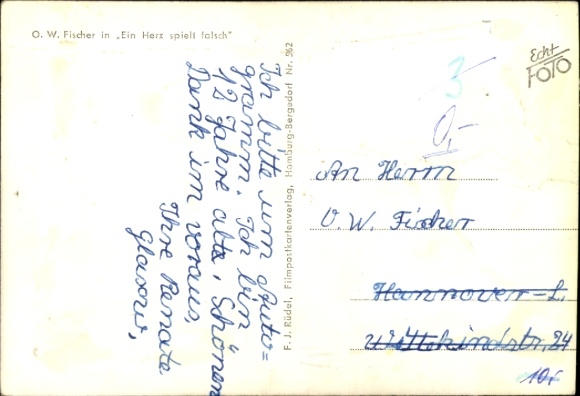 O. W. Fischer in „Ein Herz spielt falsch"
Echt
FOTO
3
0,-
Ich bitte um Auto=
gramm. Ich bin
12 Jahre alt. Schönen
Dank im voraus,
Ihre Renate
F. J. Rüdel, Filmpostkartenverlag, Hamburg-Bergedorf Nr. 362
An Herrn
O. W. Fischer
Hannover-L.
Wittekindstr. 24
10,-